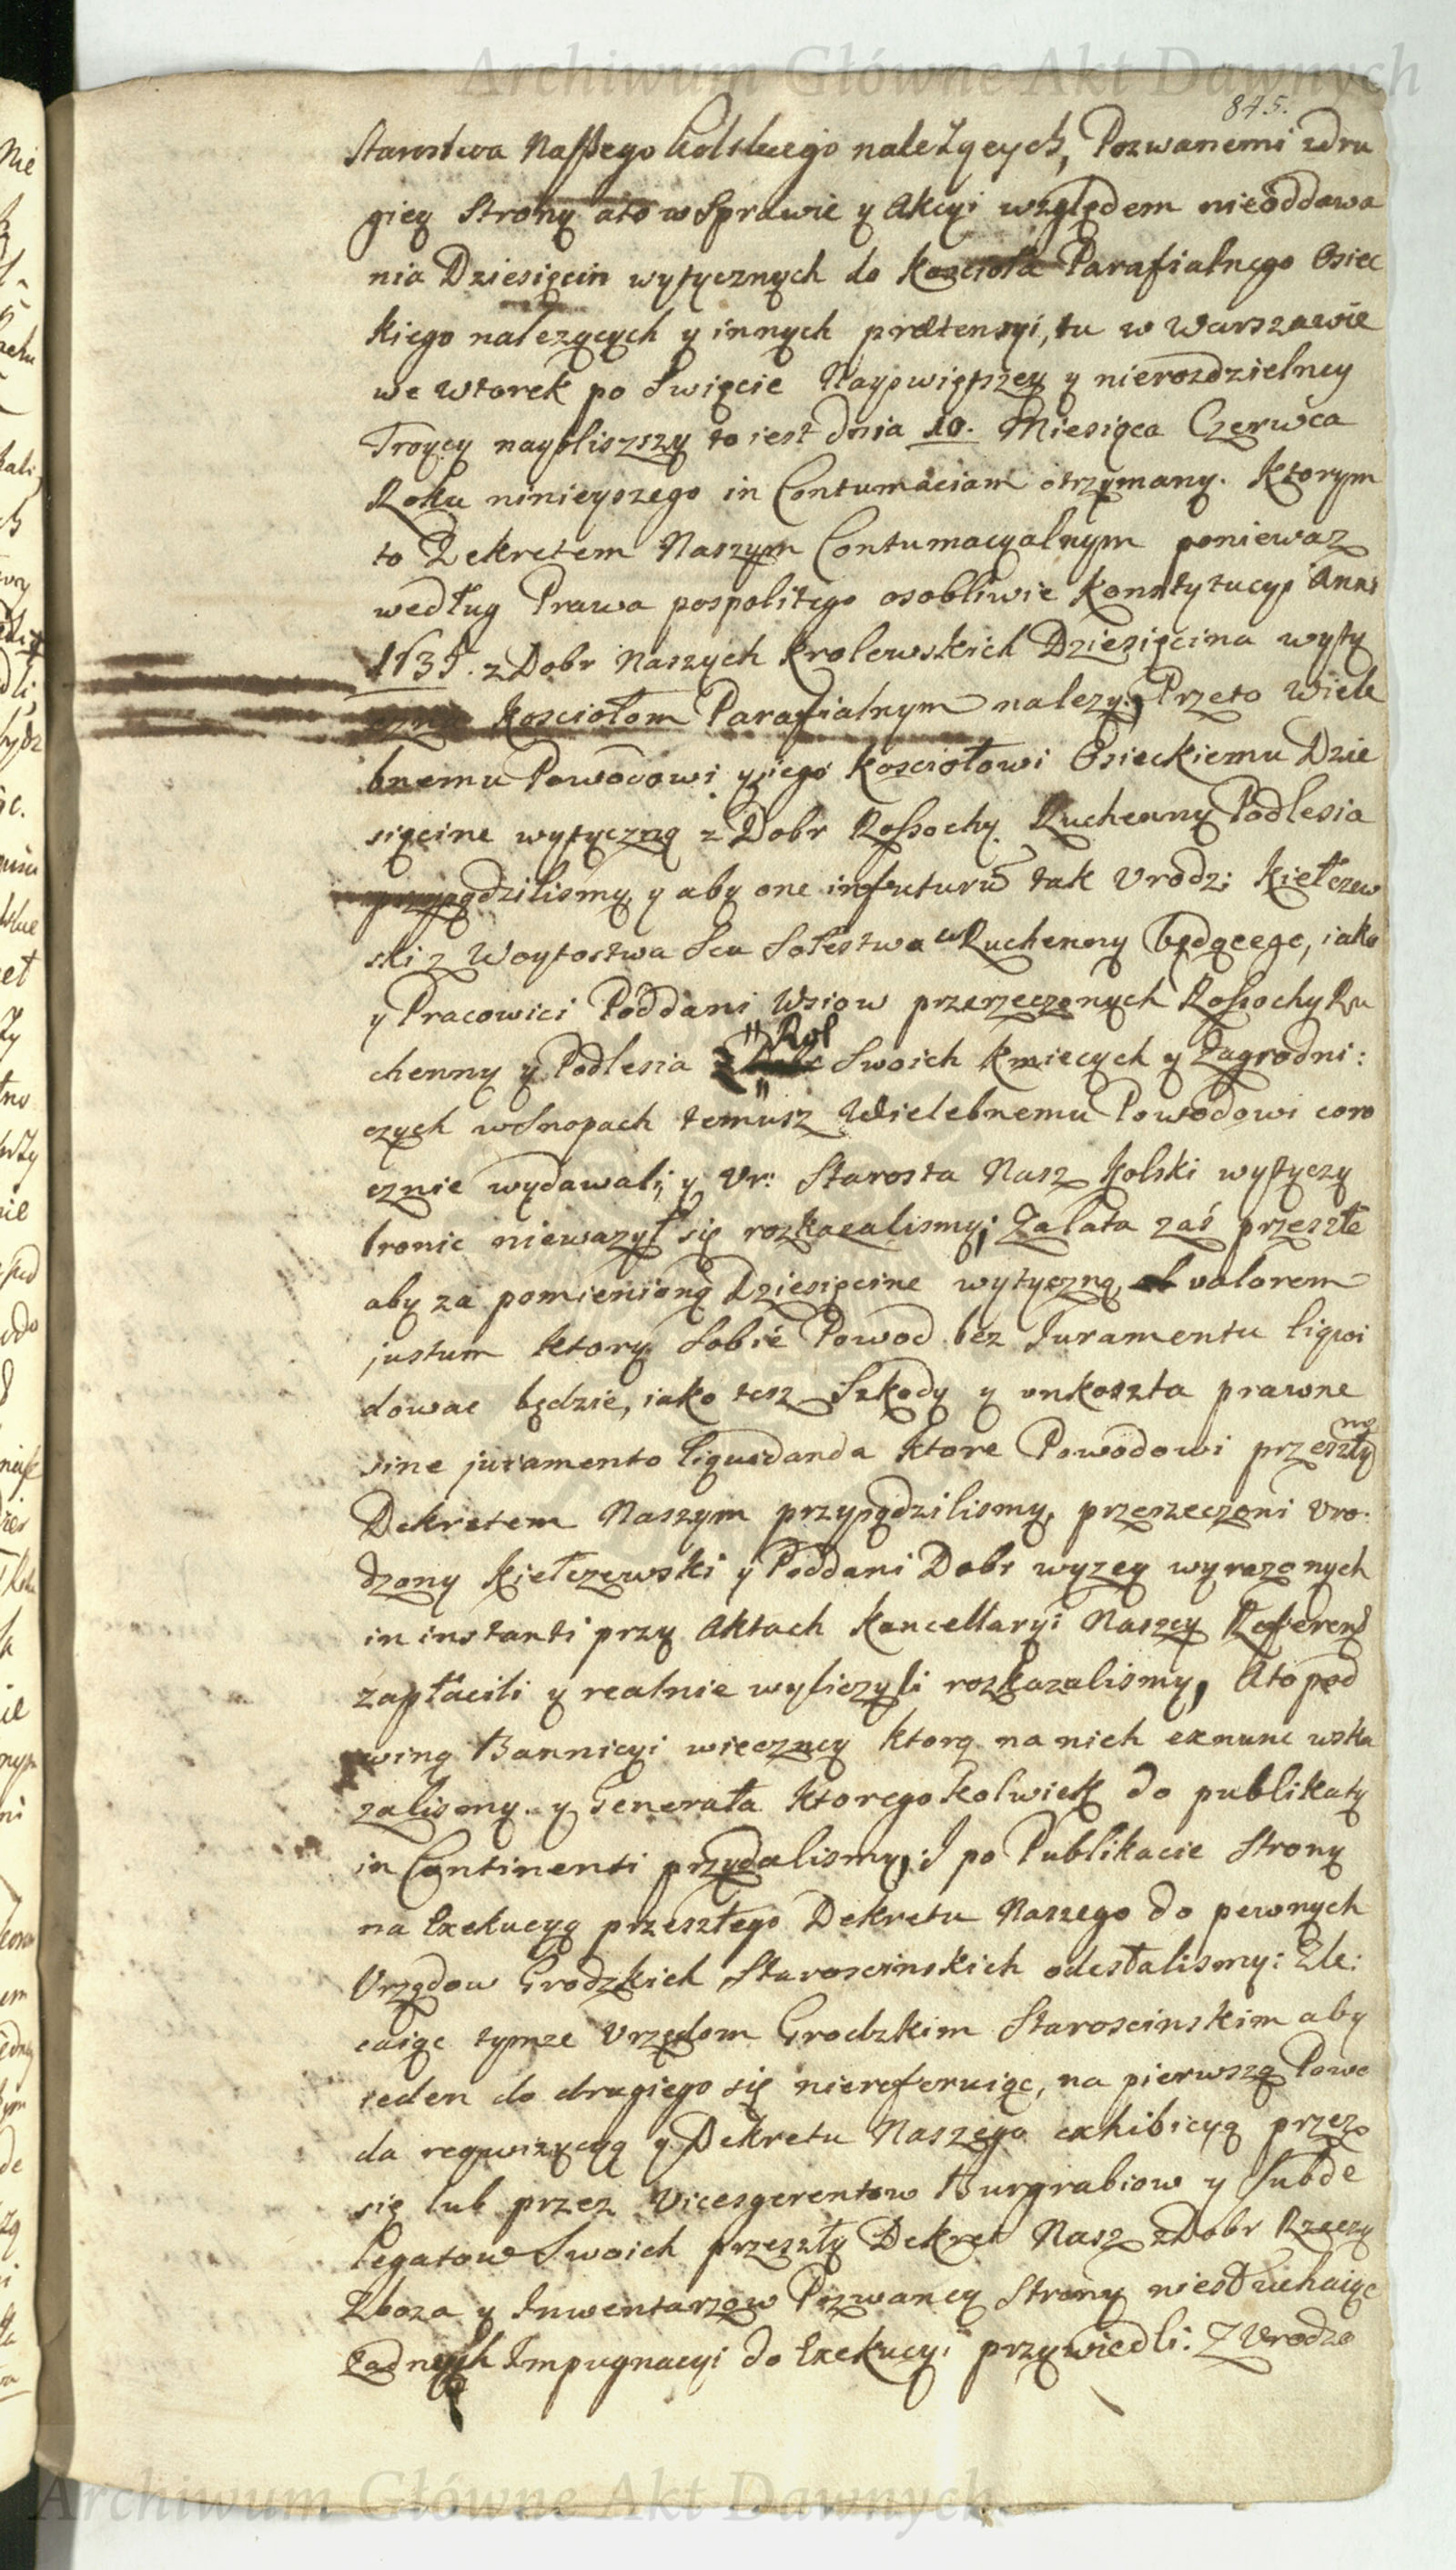 Archiwum Główne Akt Dawnych
845.
Starostwa Naszego Kolskiego należących, Pozwanemi zdru
giey Strony ato w Sprawie y Akcyi względem nieoddawa
nia Dziesięcin wytycznych do kosciola Parafialnego Osiec
kiego nalezących y innych prætensyi, tu w Warszawie
we wtorek po Swięcie Nayswiętszey y nierozdzielney
Troycy naybliszszy to iest dnia 10. Miesiąca Czerwca
Roku ninieyszego in Contumaciam otrzymany. Ktorym
to Dekretem Naszym Contumacyalnym poniewaz
według Prawa pospolitego osobliwie Konstytucyi Anni
1635. z Dobr Naszych Krolewskich Dziesięcina wyty
czna Kosciołom Parafialnym nalezy. Przeto Wiele
bnemu Powodowi y jego Kosciołowi Osieckiemu Dzie
sięcine wytyczną z Dobr Rossochy Ruchenny Podlesia
przysądzilismy, y aby one in futurũ tak Urodz: Kiełczew
ski z Woytostwa Seu Sołestwa w Ruchenny będącege, iako
y Pracowici Poddani Wsiow przerzeczonych Rossochy Ru
chenny y Podlesia z Rol Swoich Kmiecych y Zagrodni:
czych w Snopach temusz Wielebnemu Powodowi coro
cznie wydawali, y Ur: Starosta Nasz Kolski wytyczy
bronic niewazył się rozkazalismy; Zalata zaś przeszłe
aby za pomienioną Dziesięcine wytyczną, valorem
justum ktory Sobie Powod bez Juramentu liqwi
dowac będzie, iako tesz Szkody y unkoszta prawne
sine juramento liquidanda ktore Powodowi przeszłym
Dekretem Naszym przysądzilismy, przerzeczoni Uro:
dzony Kiełczewski y Poddani Dobr wyzey wyrazonych
in instanti przy Aktach Kancellaryi Naszey Referend
zapłacili y realnie wyliczyli rozkazalismy, Ato pod
winą Bannicyi wieczney ktorą na nich exnunc wska
zalismy. y Generała ktoregokolwiek do publikaty
in Continenti przydalismy, I po Publikacie Strony
na Exekucyą przeszłego Dekretu Naszego do pewnych
Urzędow Grodzkich Staroscinskich odesłalismy: Zle:
caiąc tymze Urzędom Grodzkim Staroscinskim aby
ieden do drugiego się niereferuiąc, na pierwszą Powo
da reqwizycyą y Dekretu Naszego exhibicyą przez
się lub przez Vicesgerentow Burgrabiow y Subde
legatow Swoich przeszły Dekret Nasz z Dobr Rzeczy
Zboza y Inwentarzow Pozwaney Strony niesłuchaiąc
Zadnych Impugnacyi do Exekucyi przywiedli: Z Urodzo
Archiwum Główne Akt Dawnych